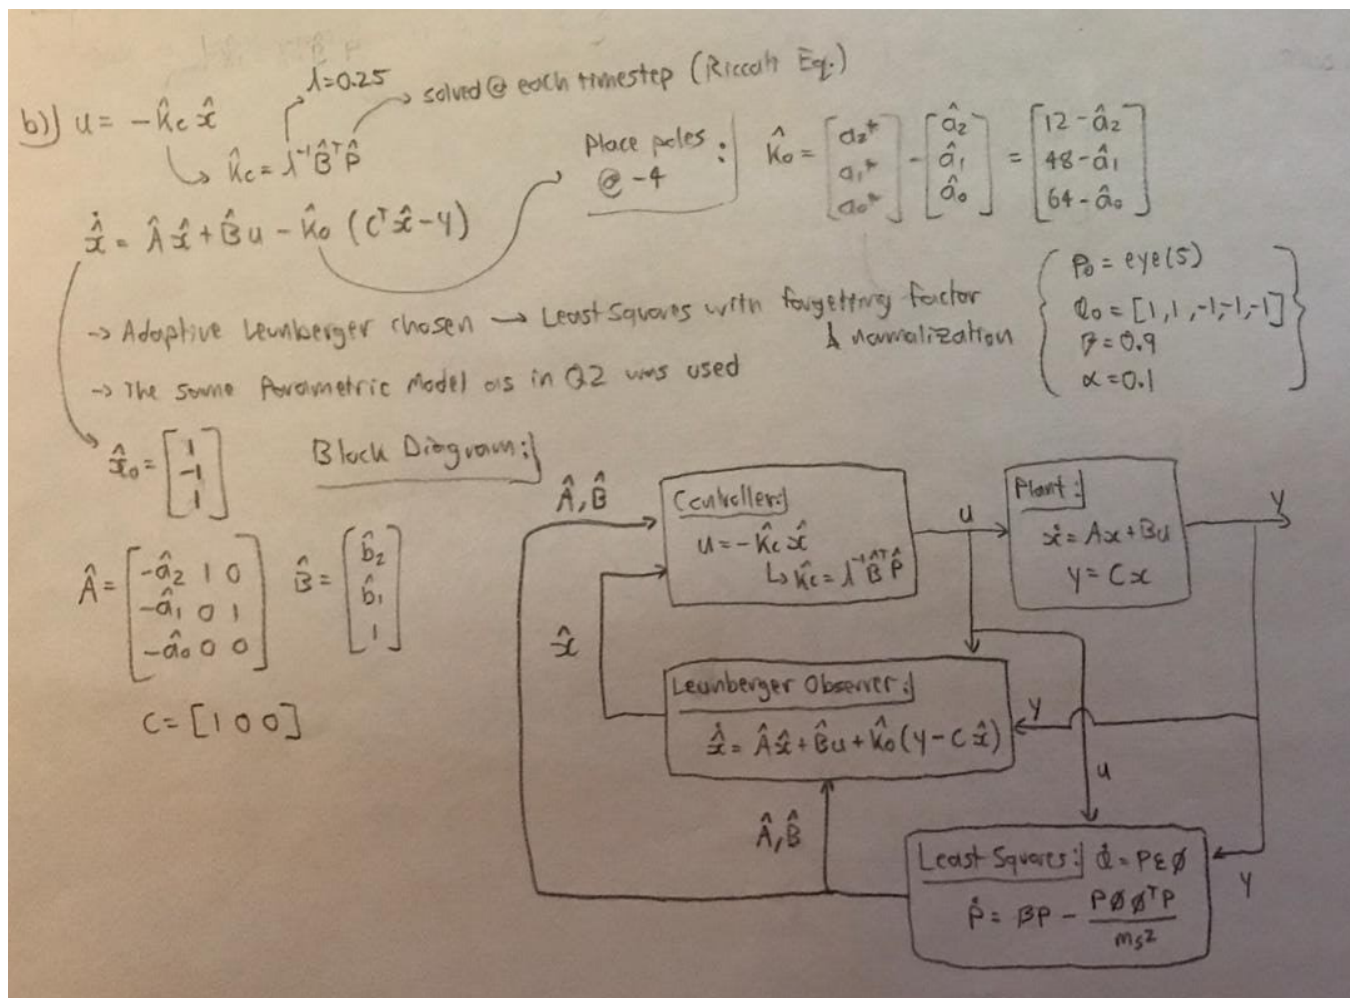 b)) u = -K̂c x̂
λ=0.25
→ solved @ each timestep (Riccati Eq.)
↳ K̂c = λ⁻¹B̂ᵀP̂
Place poles : @ -4
K̂o = [a2* a1* a0*] - [â2 â1 â0] = [12-â2 48-â1 64-â0]
x̂̇ = Âx̂ + B̂u - K̂o (Cᵀx̂-y)
→ Adaptive Leunberger chosen → Least Squares with forgetting factor & normalization
{ P0 = eye(5)
Q0 = [1,1,-1,-1,-1]
β=0.9
α=0.1 }
→ The same Parametric Model as in Q2 was used
x̂0 = [1 -1 1]
Block Diagram:
Â = [-â2 1 0
-â1 0 1
-â0 0 0]
B̂ = [b̂2 b̂1 1]
C = [1 0 0]
Â, B̂
Controller:
u = -K̂c x̂
↳ K̂c = λ⁻¹B̂ᵀP̂
u
Plant:
ẋ = Ax + Bu
y = Cx
y
x̂
Leunberger Observer:
x̂̇ = Âx̂ + B̂u + K̂o(y - Cx̂)
y
u
Â, B̂
Least Squares: Q̇ = PεØ
Ṗ = βP - PØØᵀP / ms²
y